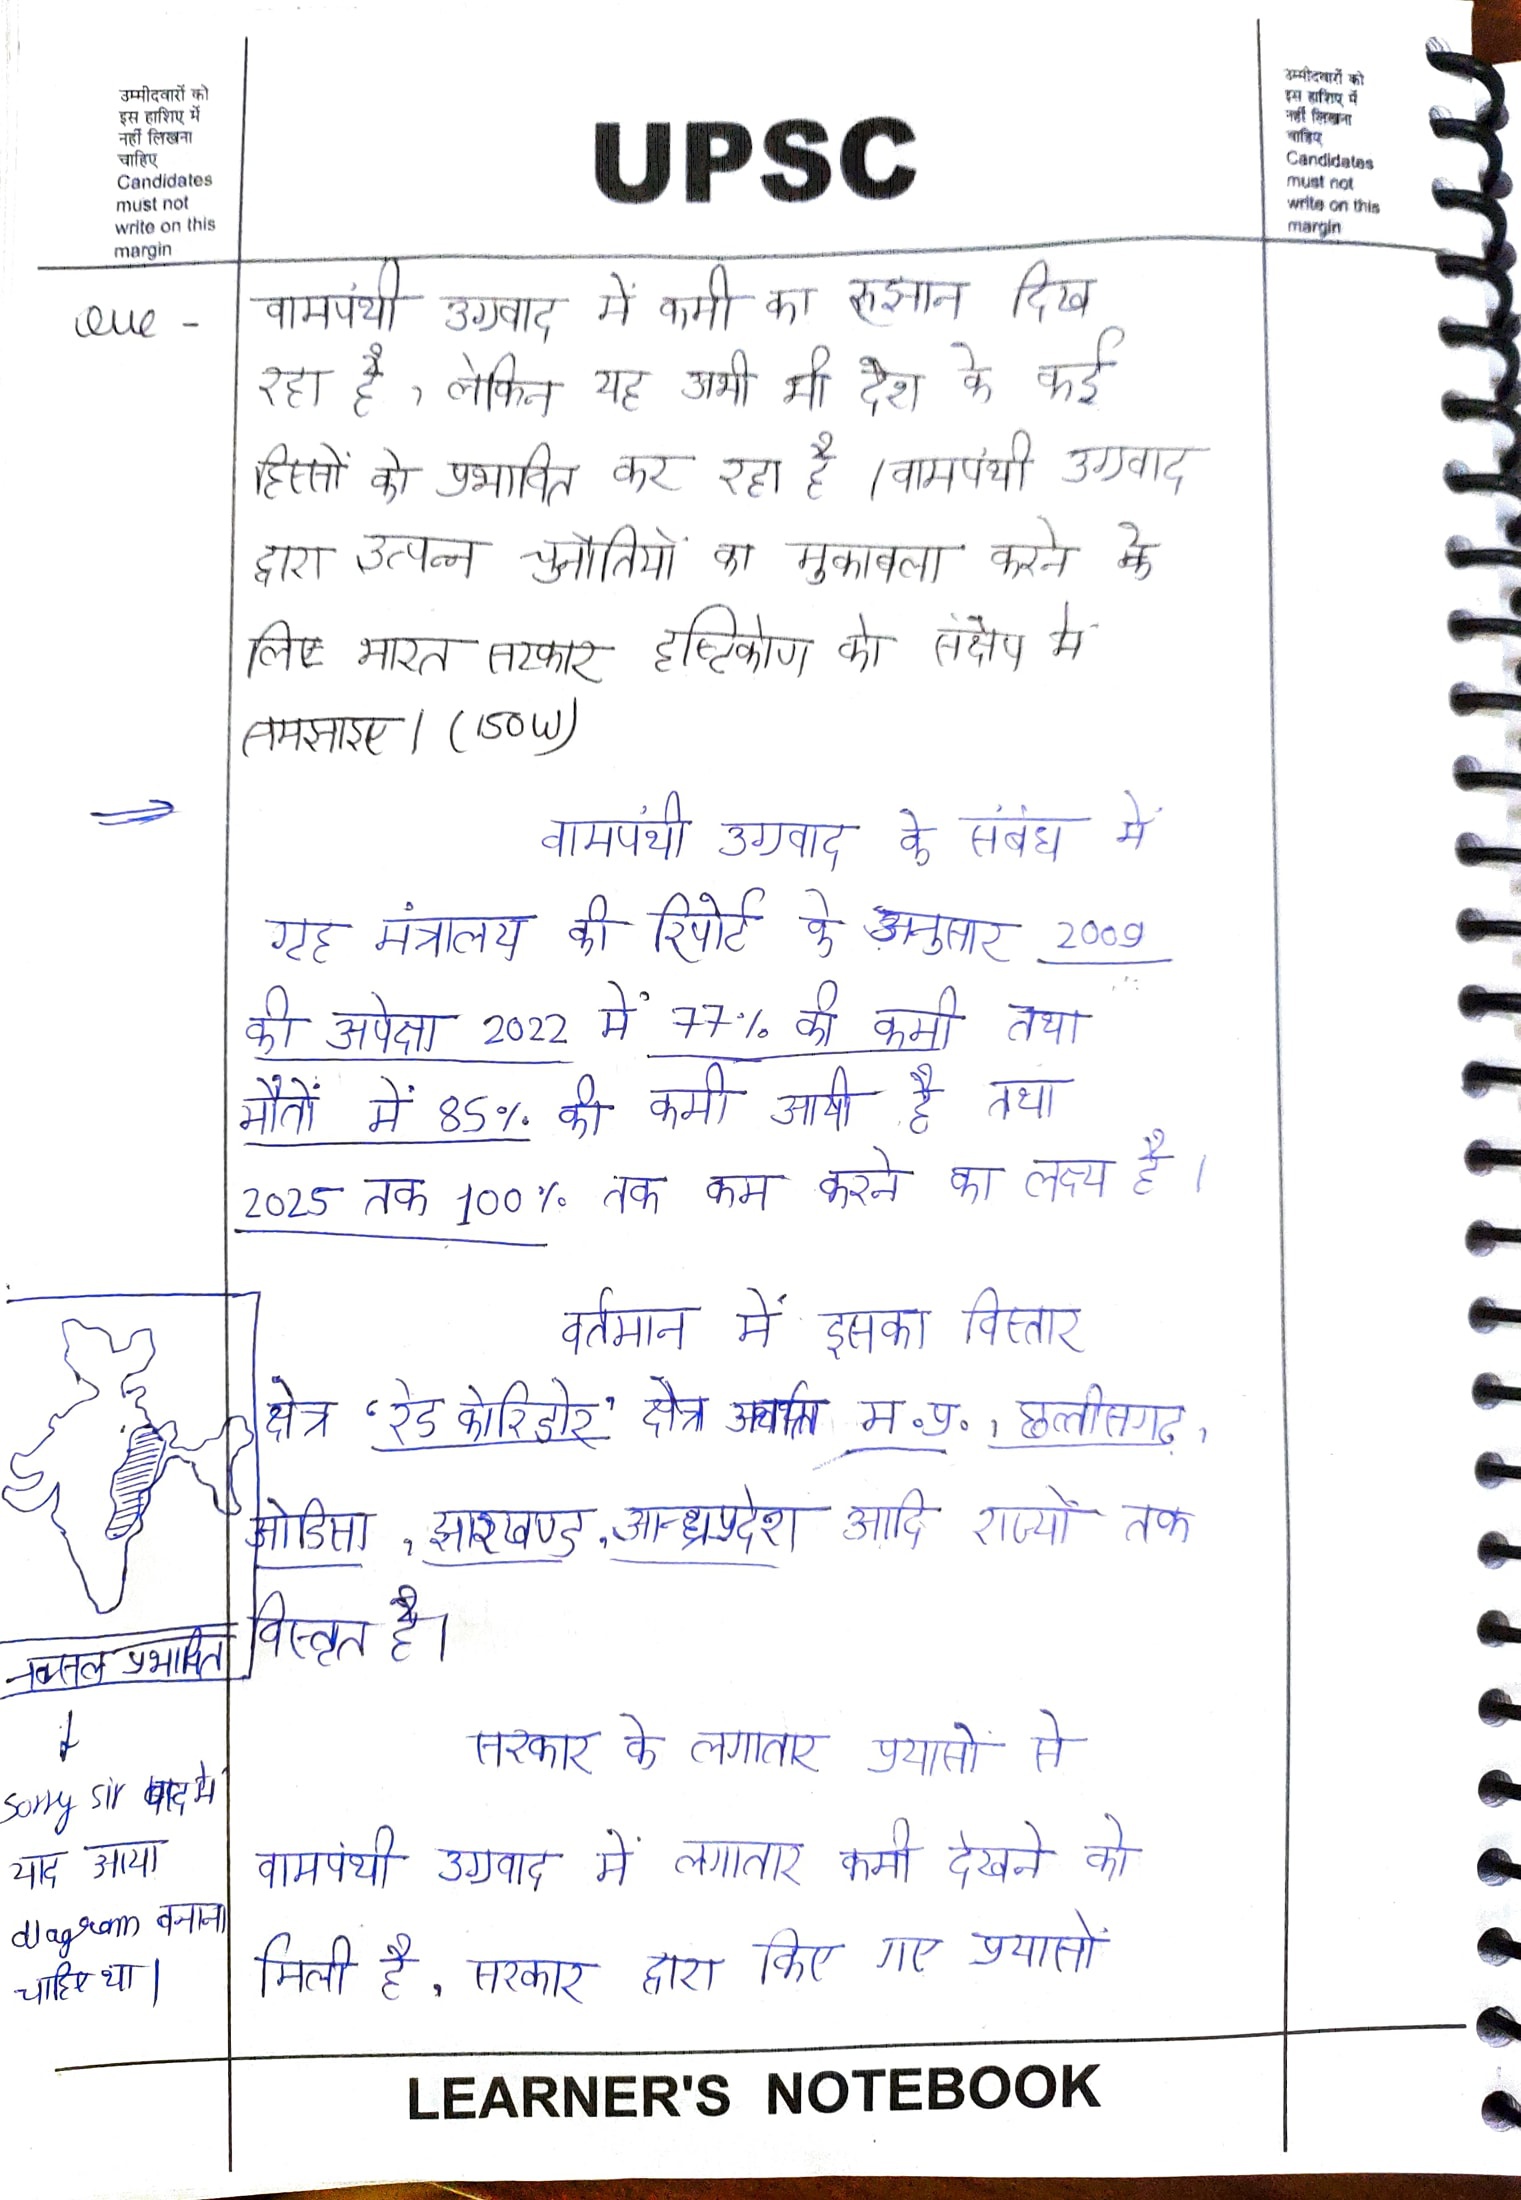 उम्मीदवारों को
इस हाशिए में
नहीं लिखना
चाहिए
Candidates
must not
write on this
margin
UPSC
उम्मीदवारों को
इस हाशिए में
नहीं लिखना
चाहिए
Candidates
must not
write on this
margin
que - वामपंथी उग्रवाद में कमी का रुझान दिख
रहा है, लेकिन यह अभी भी देश के कई
हिस्सों को प्रभावित कर रहा है। वामपंथी उग्रवाद
द्वारा उत्पन्न चुनौतियों का मुकाबला करने के
लिए भारत सरकार दृष्टिकोण को संक्षेप में
समझाइए। (150W)
⇒ वामपंथी उग्रवाद के संबंध में
गृह मंत्रालय की रिपोर्ट के अनुसार 2009
की अपेक्षा 2022 में 77% की कमी तथा
मौतों में 85% की कमी आयी है तथा
2025 तक 100% तक कम करने का लक्ष्य है।
वर्तमान में इसका विस्तार
क्षेत्र 'रेड कोरिडोर' क्षेत्र अर्थात म.प्र., छत्तीसगढ़,
ओडिसा, झारखण्ड, आन्ध्रप्रदेश आदि राज्यों तक
विस्तृत है।
नक्सल प्रभावित
सरकार के लगातार प्रयासों से
वामपंथी उग्रवाद में लगातार कमी देखने को
मिली है, सरकार द्वारा किए गए प्रयासों
Sorry sir बाद में
याद आया
diagram बनाना
चाहिए था।
LEARNER'S NOTEBOOK